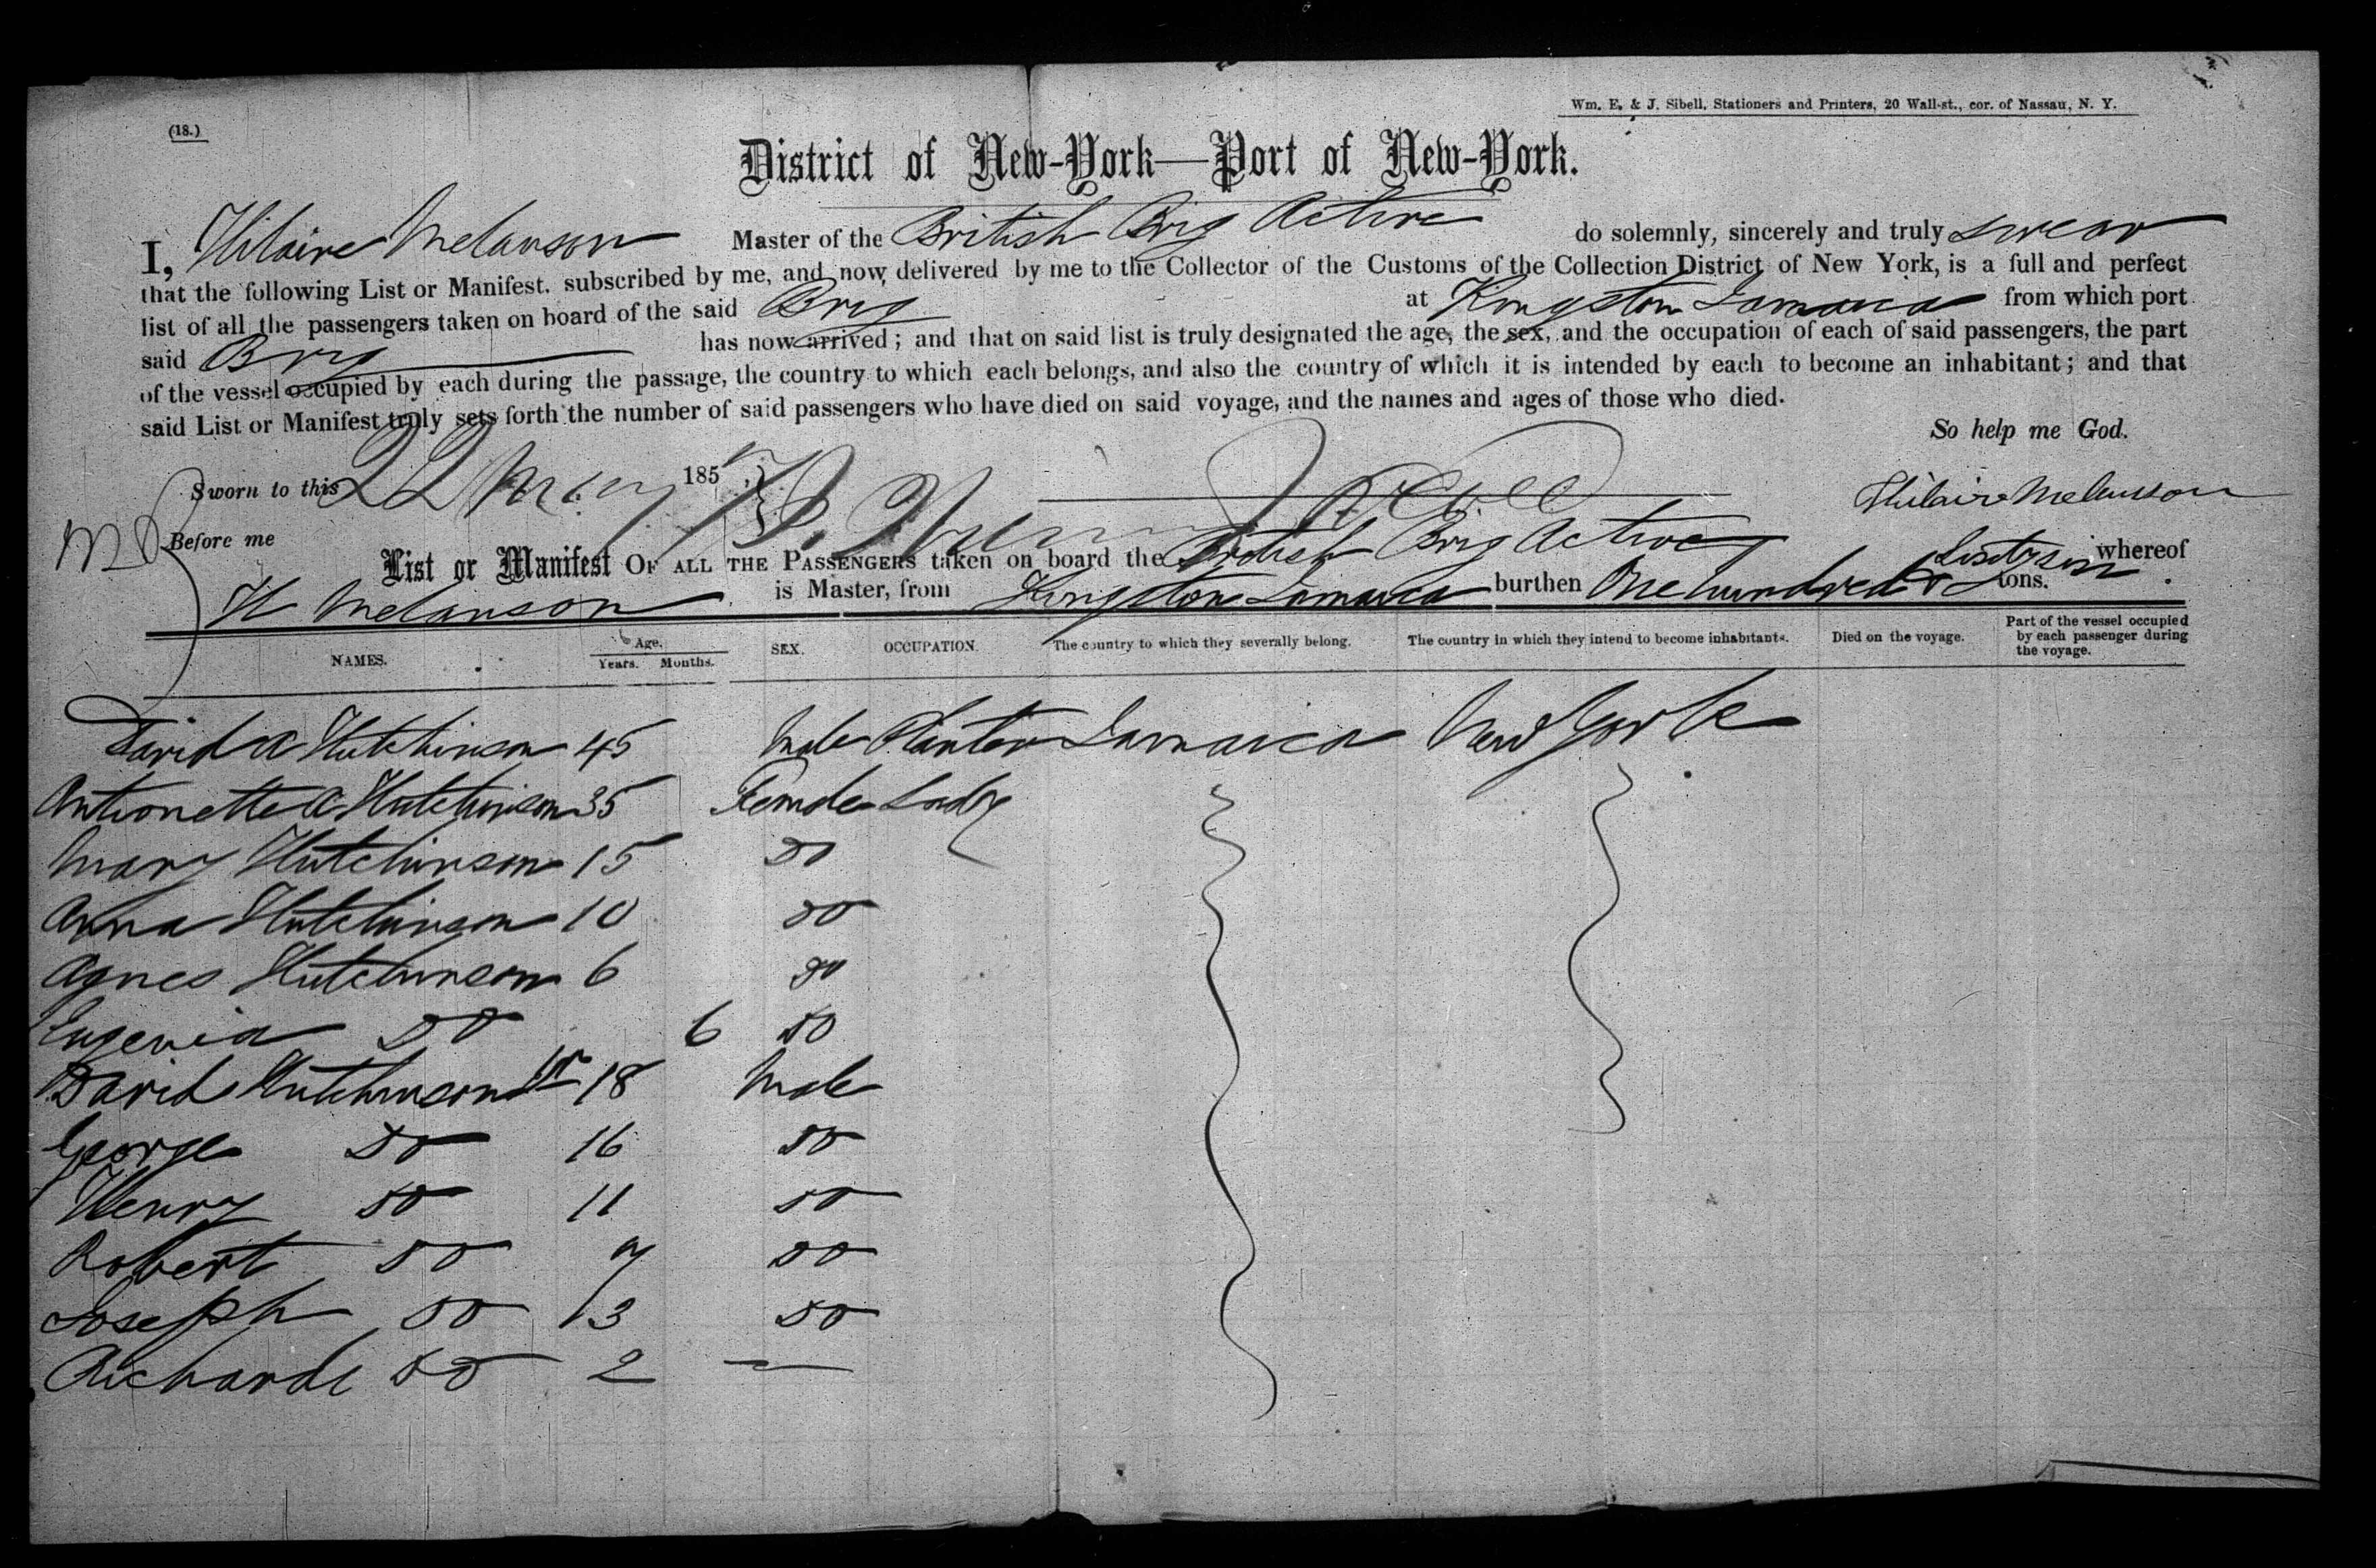 Wm. E. & J. Sibell, Stationers and Printers, 20 Wall-st., cor. of Nassau, N. Y.
(18.)
District of New-York—Port of New-York.
I, Hilaire Melanson Master of the British Brig Active do solemnly, sincerely and truly swear
that the following List or Manifest. subscribed by me, and now delivered by me to the Collector of the Customs of the Collection District of New York, is a full and perfect
list of all the passengers taken on board of the said Brig at Kingston Jamaica from which port
said Brig has now arrived; and that on said list is truly designated the age, the sex, and the occupation of each of said passengers, the part
of the vessel occupied by each during the passage, the country to which each belongs, and also the country of which it is intended by each to become an inhabitant; and that
said List or Manifest truly sets forth the number of said passengers who have died on said voyage, and the names and ages of those who died.
So help me God.
Sworn to this 22 May 1857
Hilaire Melanson
Before me
List or Manifest OF ALL THE PASSENGERS taken on board the British Brig Active whereof
H Melanson is Master, from Kingston Jamaica burthen One hundred & tons.
NAMES. Age. Years. Months. SEX. OCCUPATION. The country to which they severally belong. The country in which they intend to become inhabitants. Died on the voyage. Part of the vessel occupied by each passenger during the voyage.
David A Hutchinson 45 Male Planter Jamaica New York
Antionette A Hutchinson 35 Female Lady
Mary Hutchinson 15 Do
Anna Hutchinson 10 Do
Agnes Hutchinson 6 Do
Eugenia Do 6 Do
David Hutchinson Jr 18 Male
George Do 16 Do
Henry Do 11 Do
Robert Do Do
Joseph Do Do
Richard Do 2